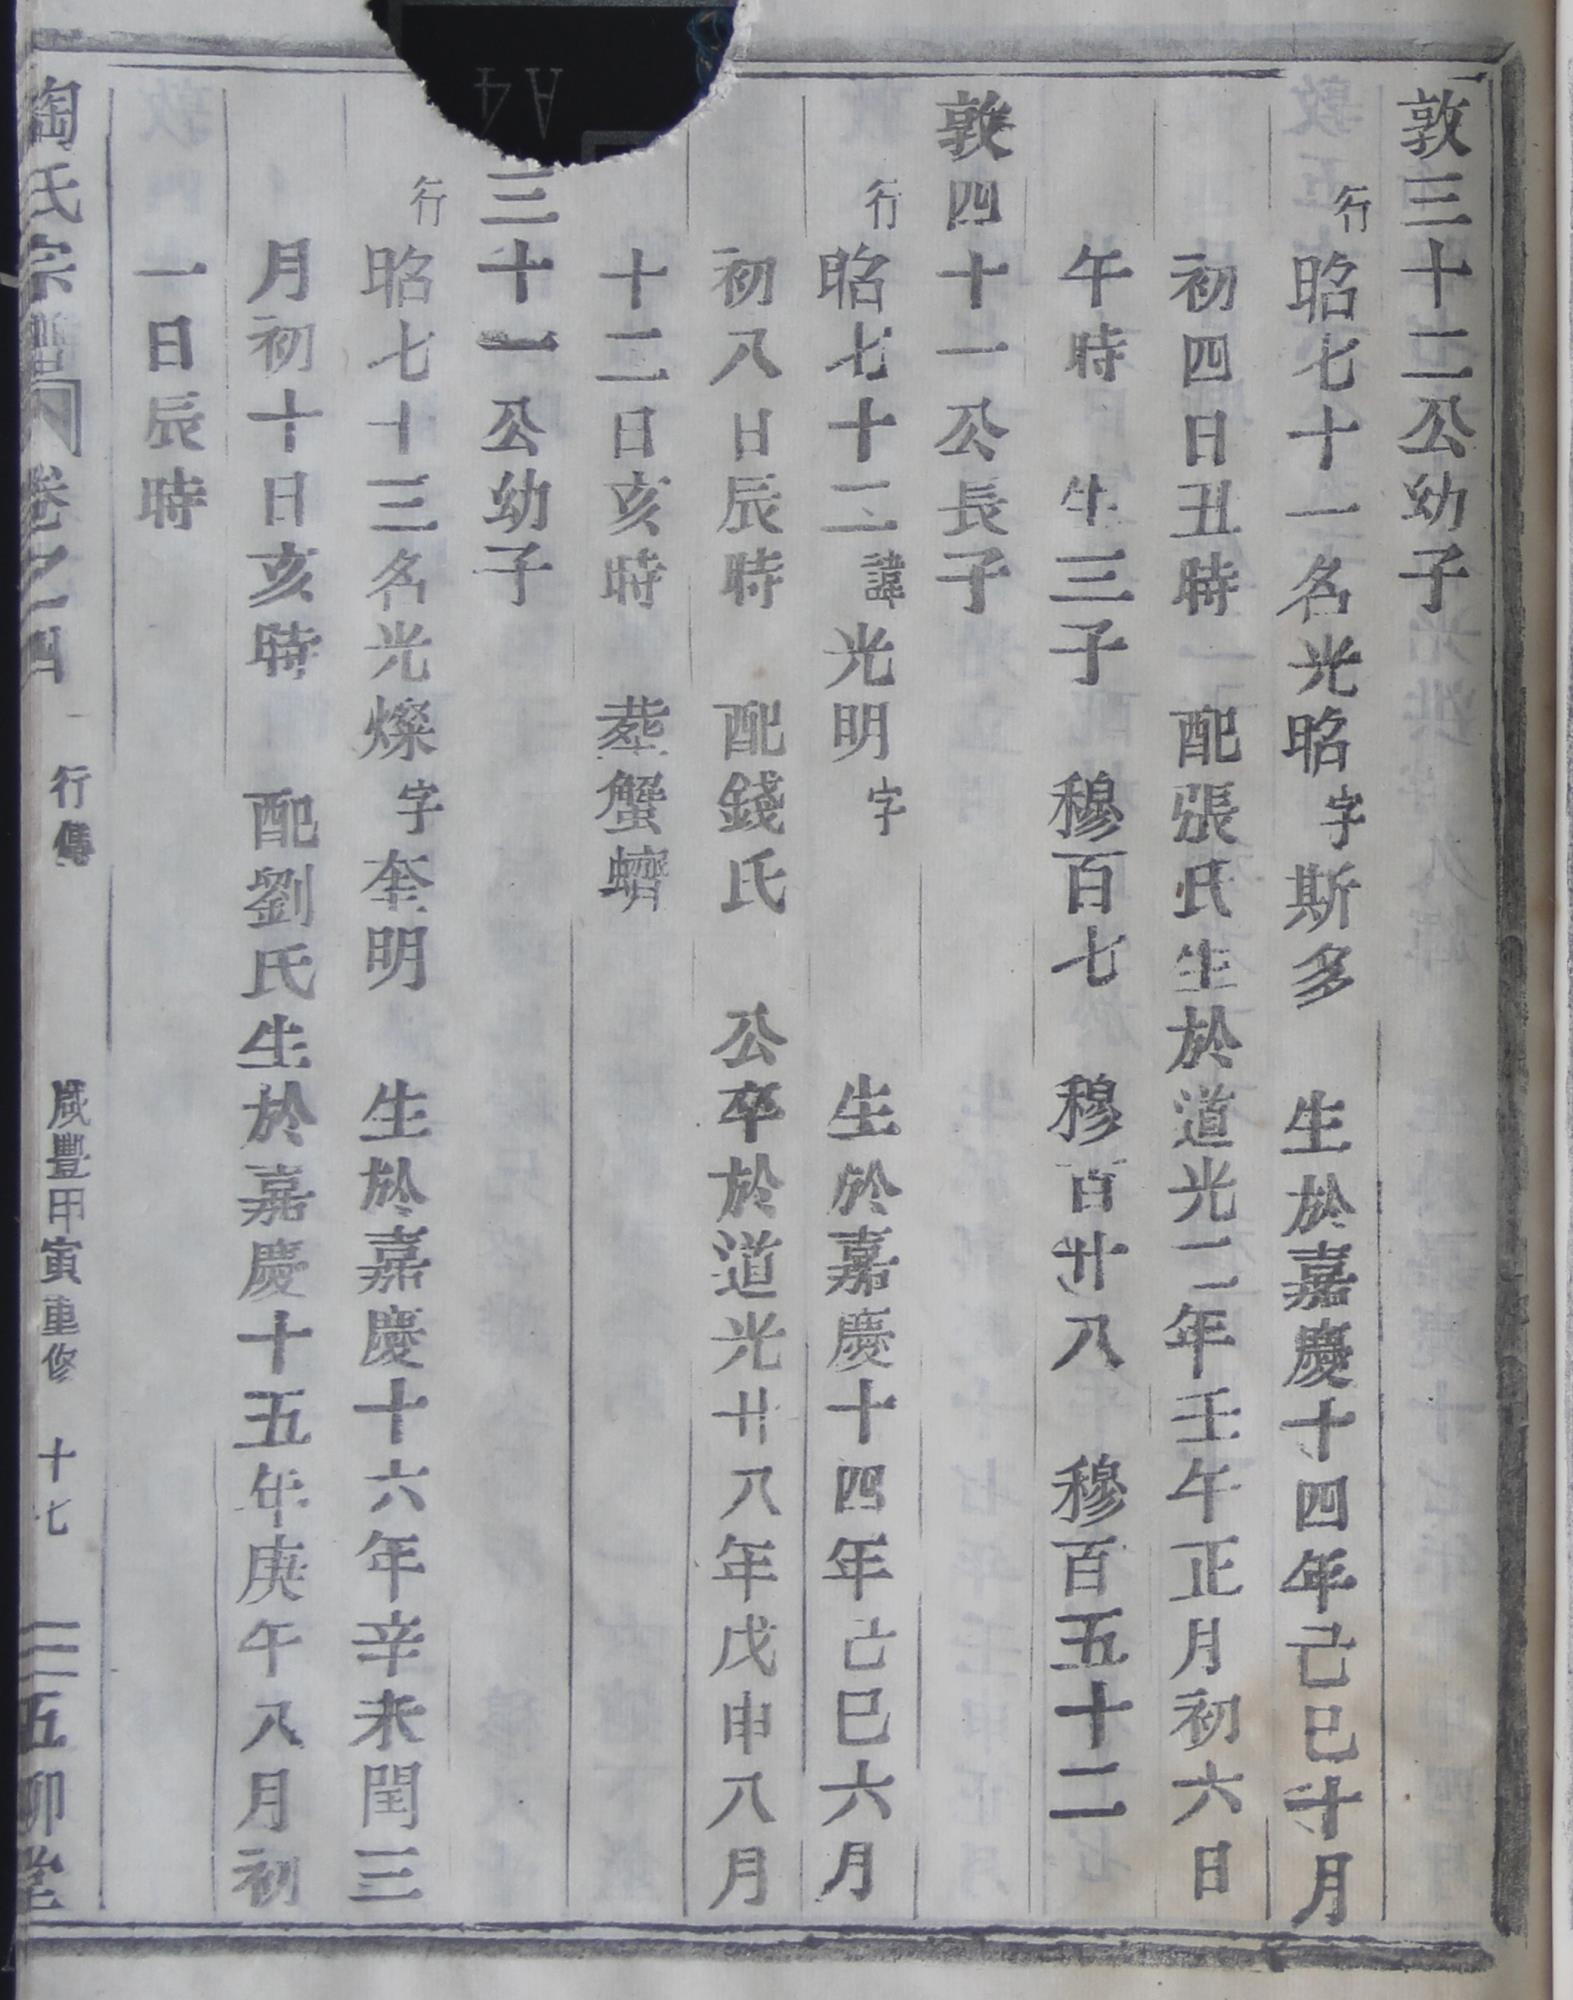 敦三十二公幼子
行昭七十一名光昭字斯多　生於嘉慶十四年己巳十月
初四日丑時　配張氏生於道光二年壬午正月初六日
午時　生三子　穆百七　穆百廿八　穆百五十二
敦四十一公長子
行昭七十二諱光明字　生於嘉慶十四年己巳六月
初八日辰時　配錢氏　公卒於道光廿八年戊申八月
十二日亥時　塟蟹蠐
三十一公幼子
行昭七十三名光燦字奎明　生於嘉慶十六年辛未閏三
月初十日亥時　配劉氏生於嘉慶十五年庚午八月初
一日辰時
陶氏宗譜　卷之四　行傳　咸豐甲寅重修　十七　五柳堂
A4